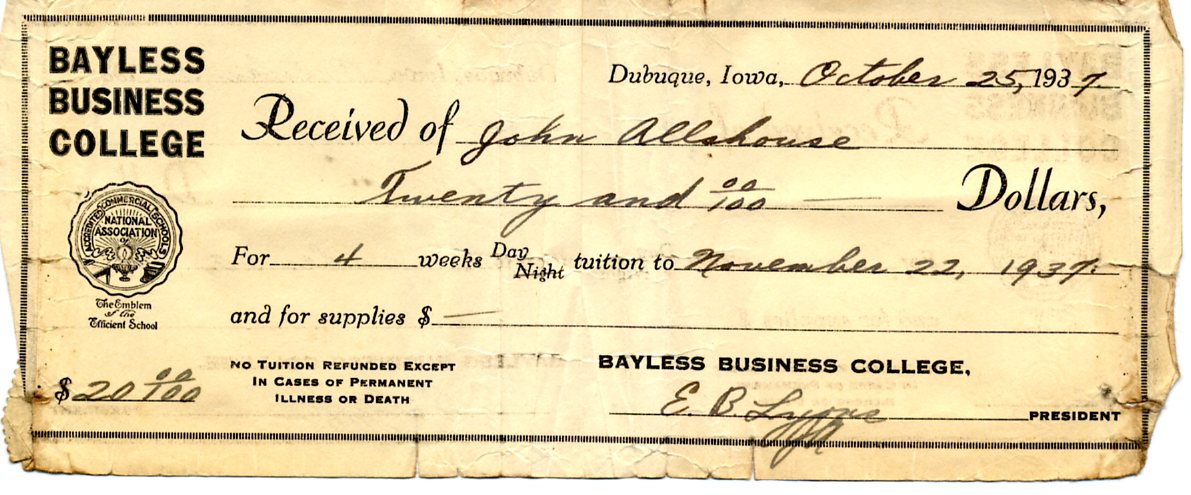 BAYLESS
BUSINESS
COLLEGE
Dubuque, Iowa, October 25, 1937.
Received of John Allshouse
Twenty and 00/100 — Dollars,
For 4 weeks Day/Night tuition to November 22, 1937.
and for supplies $ —
ACCREDITED COMMERCIAL SCHOOLS
NATIONAL
ASSOCIATION
of
The Emblem
of the
Efficient School
$ 20 00/100
NO TUITION REFUNDED EXCEPT
IN CASES OF PERMANENT
ILLNESS OR DEATH
BAYLESS BUSINESS COLLEGE,
E. B. Lyons
PRESIDENT